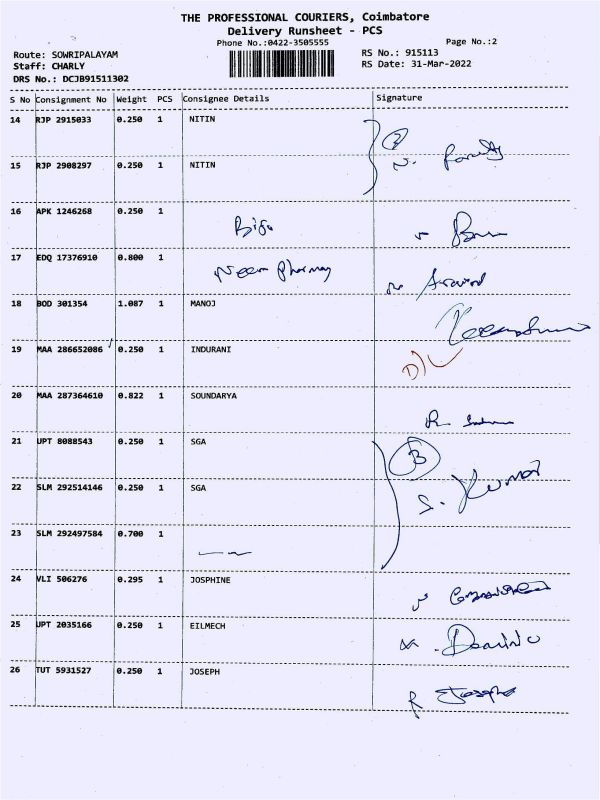 THE PROFESSIONAL COURIERS, Coimbatore
Delivery Runsheet - PCS
Phone No.:0422-3505555 Page No.:2
Route: SOWRIPALAYAM RS No.: 915113
Staff: CHARLY RS Date: 31-Mar-2022
DRS No.: DCJB91511302
S No Consignment No Weight PCS Consignee Details Signature
14 RJP 2915033 0.250 1 NITIN
15 RJP 2908297 0.250 1 NITIN
16 APK 1246268 0.250 1
17 EDQ 17376910 0.800 1 Neem Pharmacy Aravind
18 BOD 301354 1.087 1 MANOJ
19 MAA 286652086 0.250 1 INDURANI D/L
20 MAA 287364610 0.822 1 SOUNDARYA
21 UPT 8088543 0.250 1 SGA 3
22 SLM 292514146 0.250 1 SGA S. Kumar
23 SLM 292497584 0.700 1
24 VLI 506276 0.295 1 JOSPHINE
25 UPT 2035166 0.250 1 EILMECH Dominic
26 TUT 5931527 0.250 1 JOSEPH Joseph